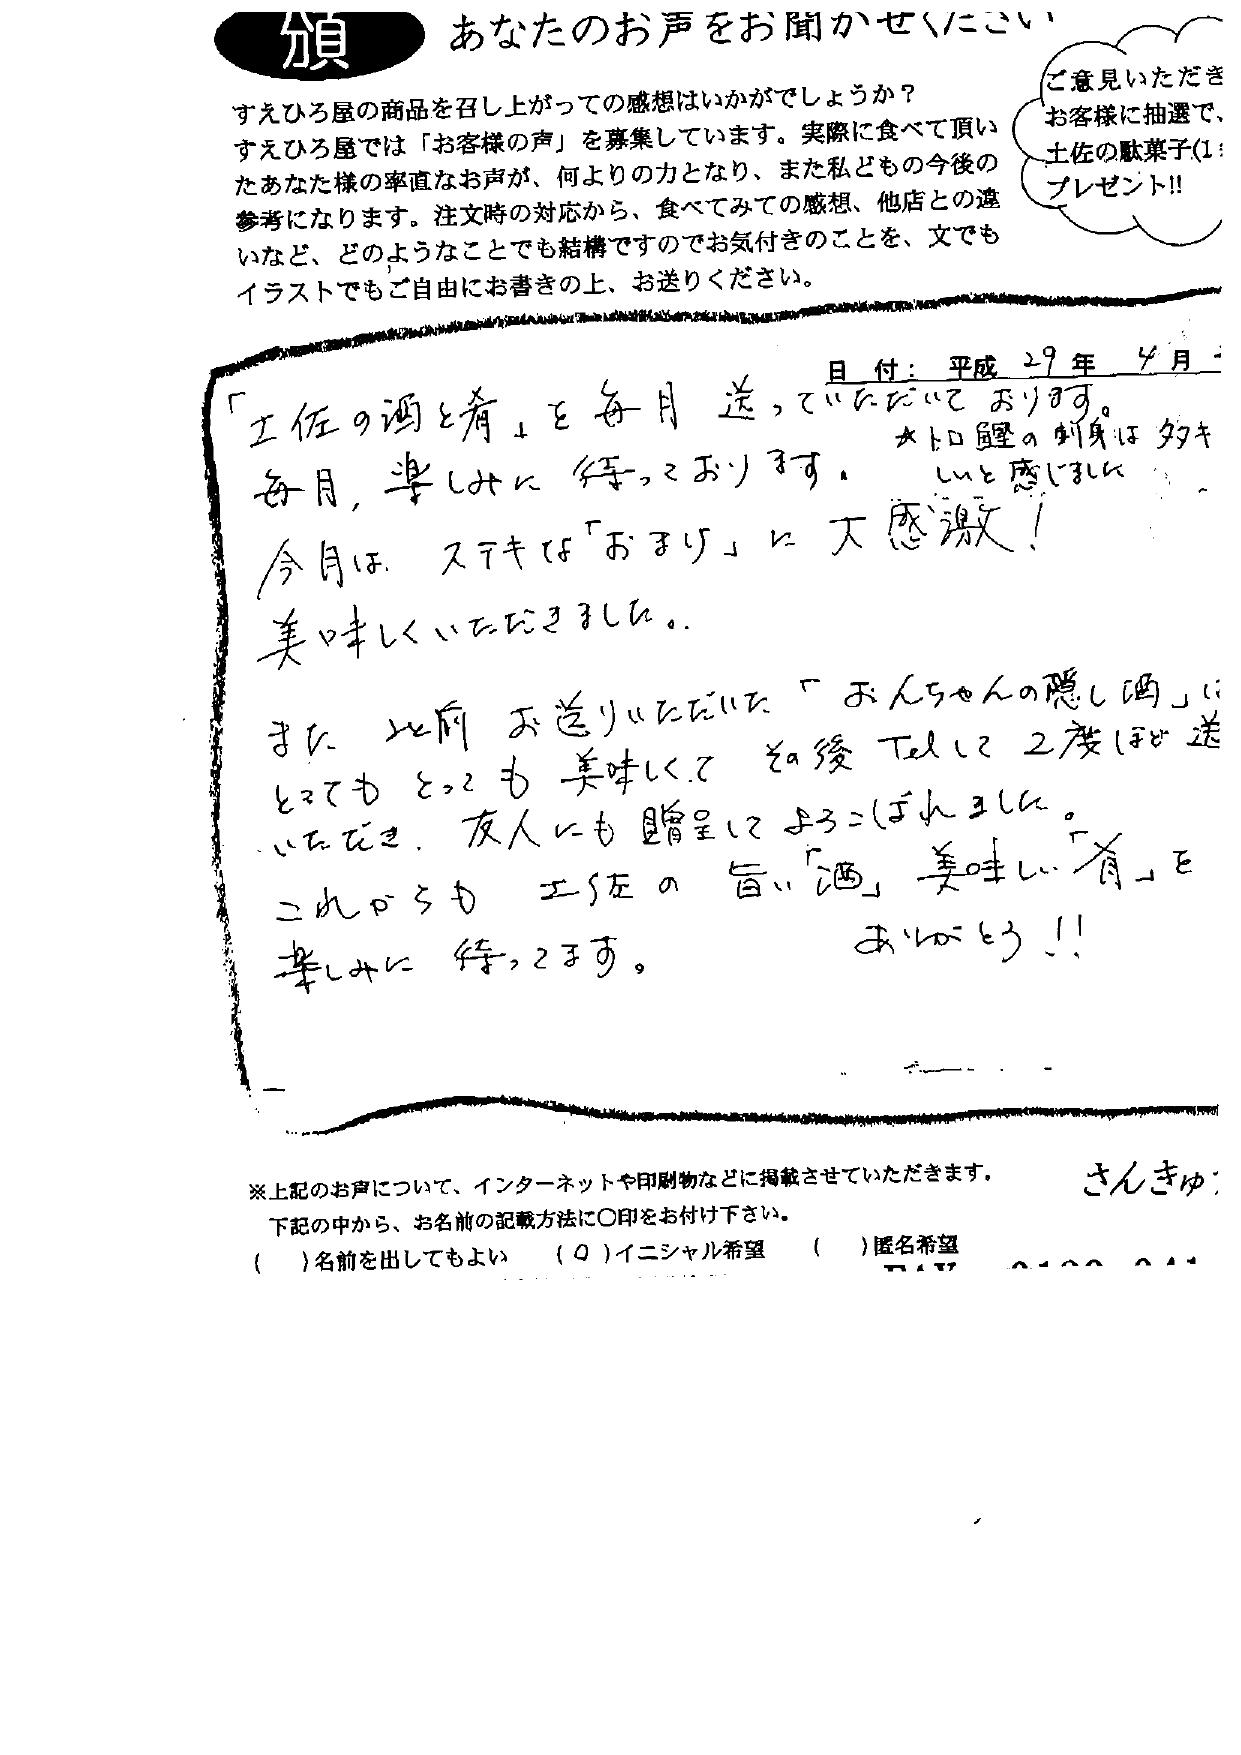 頒
あなたのお声をお聞かせください
すえひろ屋の商品を召し上がっての感想はいかがでしょうか？
すえひろ屋では「お客様の声」を募集しています。実際に食べて頂い
たあなた様の率直なお声が、何よりの力となり、また私どもの今後の
参考になります。注文時の対応から、食べてみての感想、他店との違
いなど、どのようなことでも結構ですのでお気付きのことを、文でも
イラストでもご自由にお書きの上、お送りください。
ご意見いただき
お客様に抽選で、
土佐の駄菓子(1
プレゼント!!
日 付： 平成 29 年 4 月
「土佐の酒と肴」を毎月 送っていただいております。
★トロ鰹の刺身はタタキ
しいと感じました
毎月、楽しみに待っております。
今月は ステキな「おまけ」に 大感激！
美味しくいただきました。
また 以前 お送りいただいた「おんちゃんの隠し酒」は
とってもとっても 美味しくて その後 Telして 2度ほど 送
いただき、友人にも贈呈してよろこばれました。
これからも 土佐の 旨い「酒」美味しい「肴」を
楽しみに 待ってます。
ありがとう!!
※上記のお声について、インターネットや印刷物などに掲載させていただきます。
下記の中から、お名前の記載方法に〇印をお付け下さい。
( )名前を出してもよい (〇)イニシャル希望 ( )匿名希望
さんきゅ
FAX 0120-941